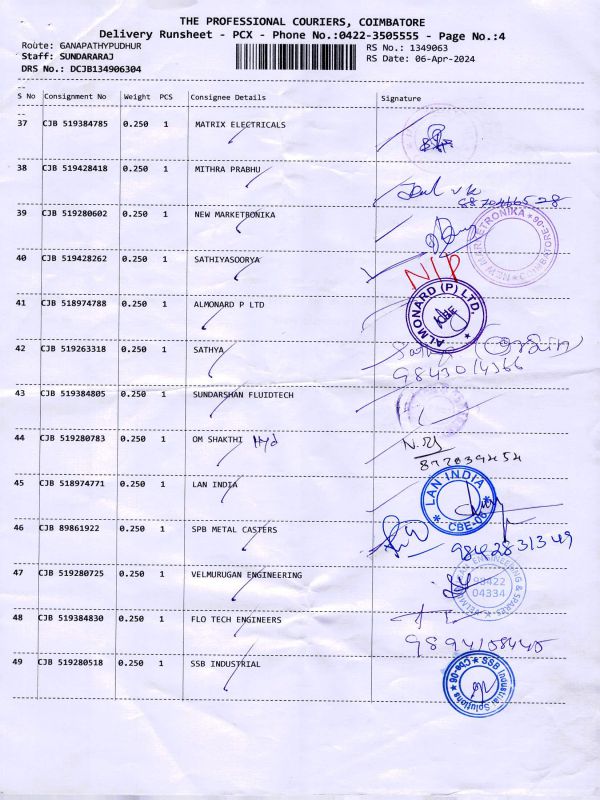 THE PROFESSIONAL COURIERS, COIMBATORE
Delivery Runsheet - PCX - Phone No.:0422-3505555 - Page No.:4
Route: GANAPATHYPUDHUR
RS No.: 1349063
Staff: SUNDARARAJ
RS Date: 06-Apr-2024
DRS No.: DCJB134906304
S No Consignment No Weight PCS Consignee Details Signature
37 CJB 519384785 0.250 1 MATRIX ELECTRICALS
38 CJB 519428418 0.250 1 MITHRA PRABHU
39 CJB 519280602 0.250 1 NEW MARKETRONIKA
NEW MARKETRONIKA
40 CJB 519428262 0.250 1 SATHIYASOORYA
NIP
41 CJB 518974788 0.250 1 ALMONARD P LTD
ALMONARD (P) LTD.
42 CJB 519263318 0.250 1 SATHYA
9843014366
43 CJB 519384805 0.250 1 SUNDARSHAN FLUIDTECH
44 CJB 519280783 0.250 1 OM SHAKTHI Hyd
45 CJB 518974771 0.250 1 LAN INDIA
LAN INDIA
CBE-06
46 CJB 89861922 0.250 1 SPB METAL CASTERS
9842831349
47 CJB 519280725 0.250 1 VELMURUGAN ENGINEERING
ENGINEERING & SPARES
98422
04334
48 CJB 519384830 0.250 1 FLO TECH ENGINEERS
9894158445
49 CJB 519280518 0.250 1 SSB INDUSTRIAL
SSB Industrial Solutions
Cbe-06